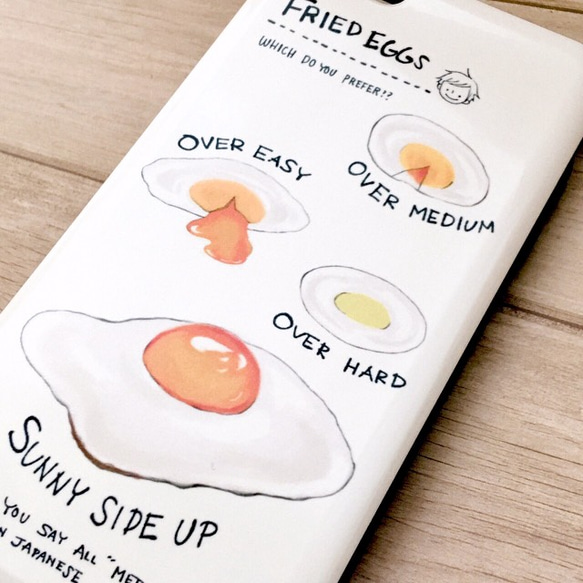 FRIED EGGS
WHICH DO YOU PREFER!?
OVER EASY
OVER MEDIUM
OVER HARD
SUNNY SIDE UP
YOU SAY ALL "MET
JAPANESE